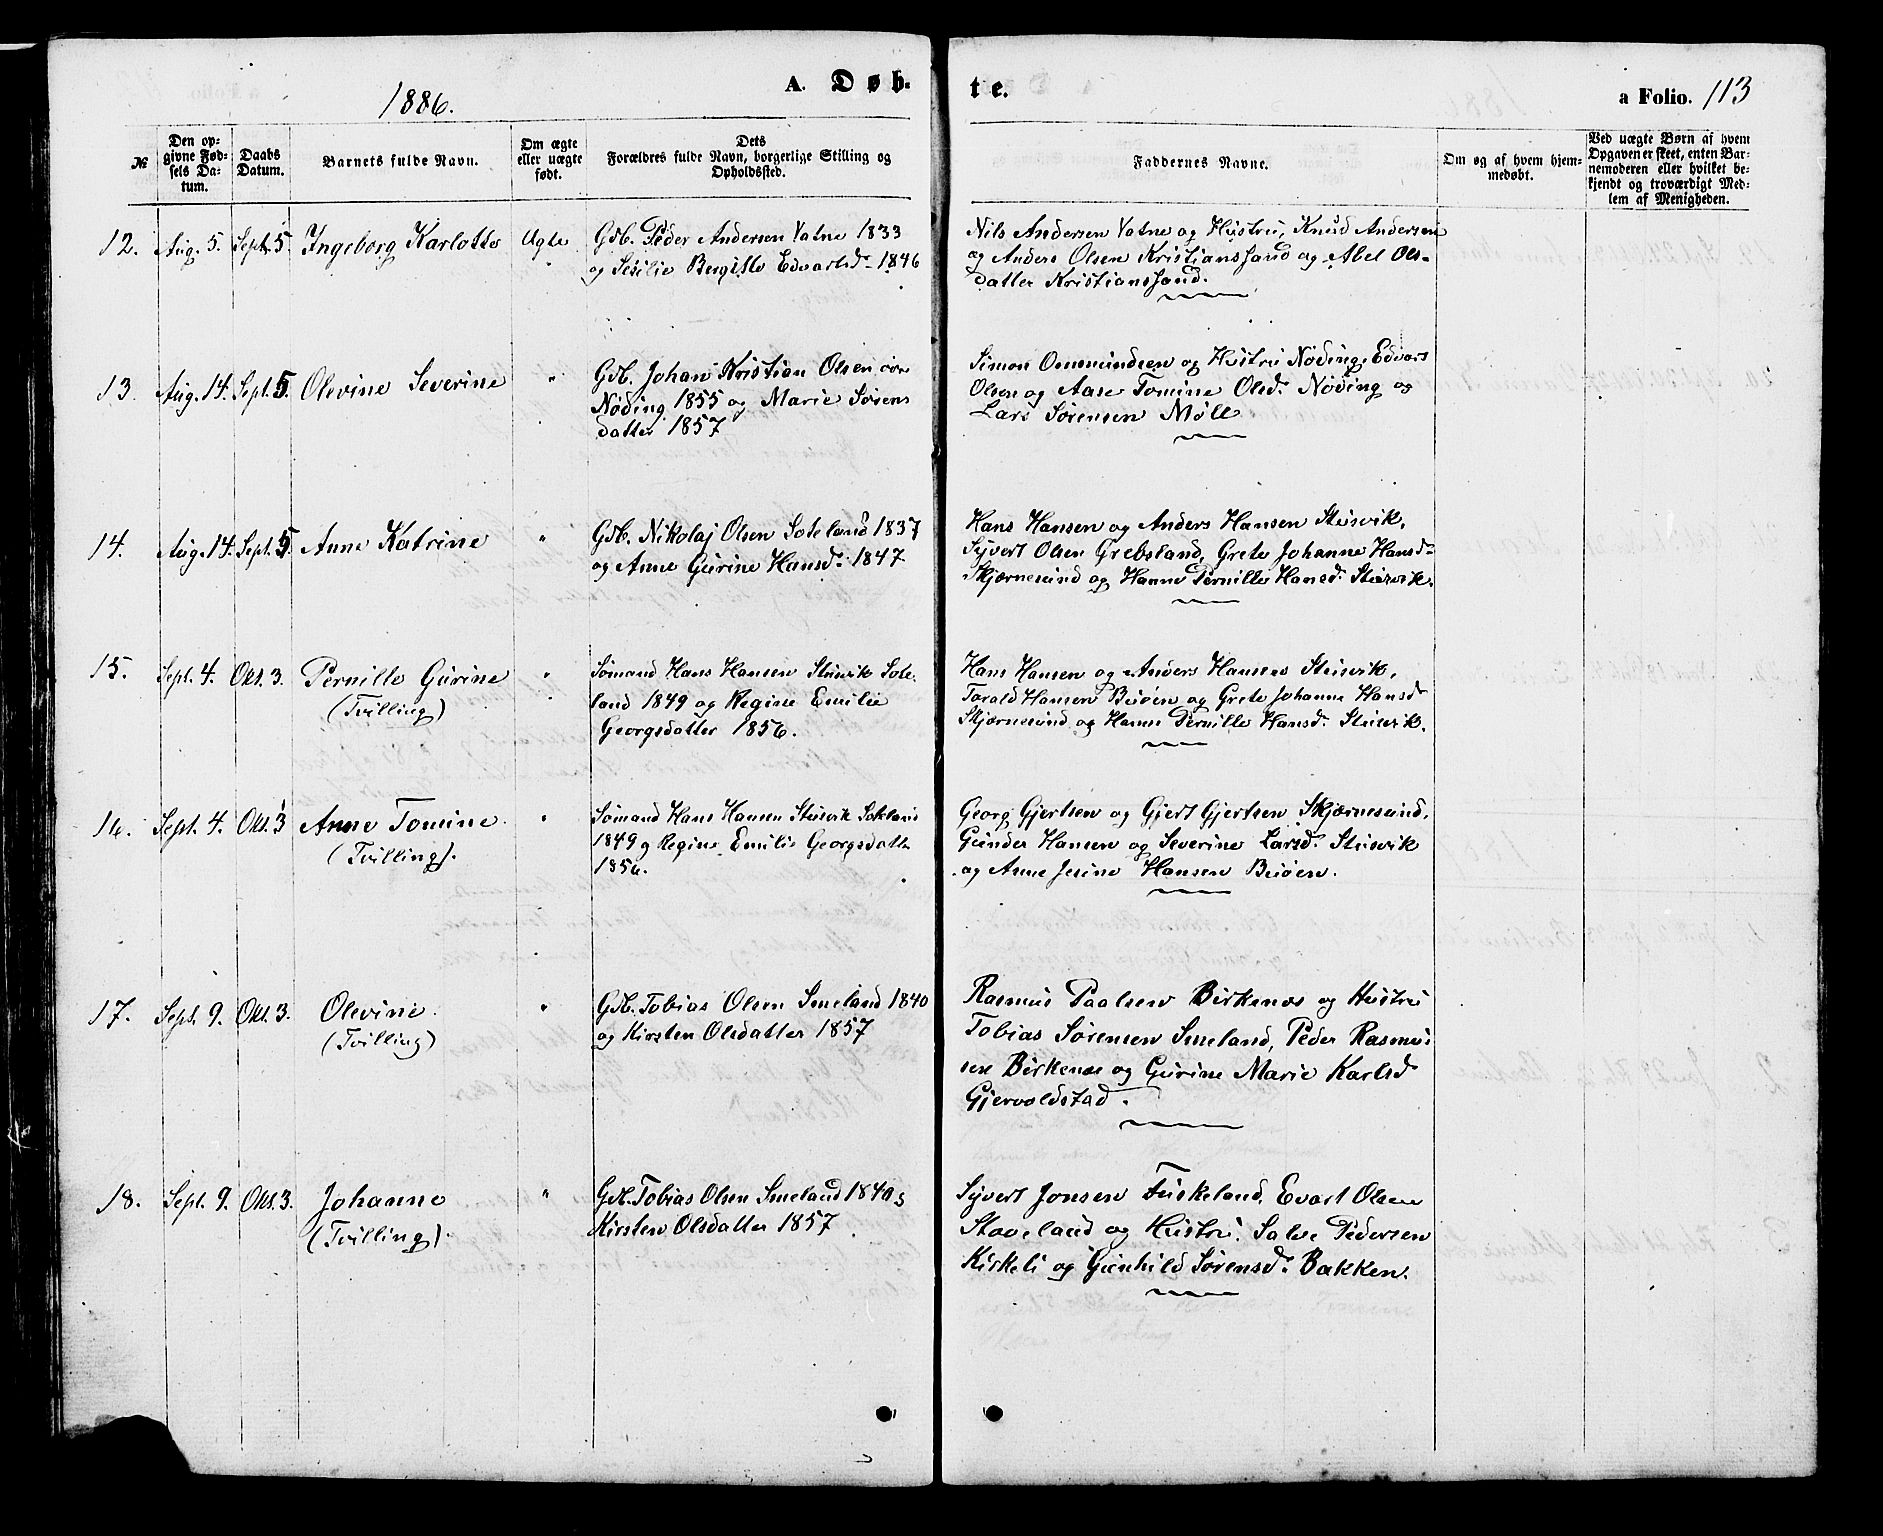 1886.
A. Døb-
te.
a Folio. 113
№
Den op-
givne Fød-
sels Da-
tum.
Daabs
Datum.
Barnets fulde Navn.
Om ægte
eller uægte
født.
Dets
Forældres fulde Navn, borgerlige Stilling og
Opholdssted.
Faddernes Navne.
Om og af hvem hjem-
medøbt.
Ved uægte Børn af hvem
Opgaven er skeet, enten Bar-
nemoderen eller hvilket be-
kjendt og troværdigt Med-
lem af Menigheden.
12. Aug. 5. Sept. 5. Ingeborg Karlotte Ægte
Gdb. Peder Andersen Vatne 1833
og Sesilie Bergitte Edvartsd. 1846
Nils Andersen Vatne og Hustru, Knud Andersen
og Anders Olsen Kristianssand og Abel Ols-
datter Kristianssand.
13. Aug. 14. Sept. 5. Olevine Severine "
Gdb. Johan Kristian Olsen
Nøding 1855 og Marie Sørens
datter 1857
Simon Ommundsen og Hustru Nøding, Edvart
Olsen og Aase Tomine Olsd. Nøding og
Lars Sørensen Møll
14. Aug. 14. Sept. 5. Anne Katrine "
Gdb. Nikolaj Olsen Soteland 1837
og Anne Gurine Hansd. 1847
Hans Hansen og Anders Hansen Stusvik,
Syvert Olsen Grebsland, Grete Johanne Hansd.
Skjærnesund og Hanne Pernille Hansd. Stusvik.
15. Sept. 4. Okt. 3. Pernille Gurine "
(Tvilling)
Sømand Hans Hansen Stusvik Sote-
land 1849 og Regine Emilie
Georgsdatter 1856.
Hans Hansen og Anders Hansen Stusvik,
Torald Hansen Buøen og Grete Johanne Hansd
Skjærnesund og Hanne Pernille Hansd. Stusvik.
16. Sept. 4. Okt. 3 Anne Tomine "
(Tvilling).
Sømand Hans Hansen Stusvik Soteland
1849 og Regine Emilie Georgsdatter
1856.
Georg Gjertsen og Gjert Gjertsen Skjærnesund,
Gunder Hansen og Severine Larsd. Stusvik
og Anne Jesine Hansen Buøen.
17. Sept. 9. Okt. 3. Olevine. "
(Tvilling)
Gdb. Tobias Olsen Smeland 1840
og Kirsten Olsdatter 1857
Rasmus Paalsen Birkenes og Hustru
Tobias Sørensen Smeland, Peder Rasmus-
sen Birkenes og Gurine Marie Karlsd
Gjervoldstad.
18. Sept. 9. Okt. 3. Johanne "
(Tvilling).
Gdb. Tobias Olsen Smeland 1840 og
Kirsten Olsdatter 1857
Syvert Jonsen Fuskeland, Evart Olsen
Staveland og Hustru, Salve Pedersen
Kirkeli og Gunhild Sørensd. Bakken.